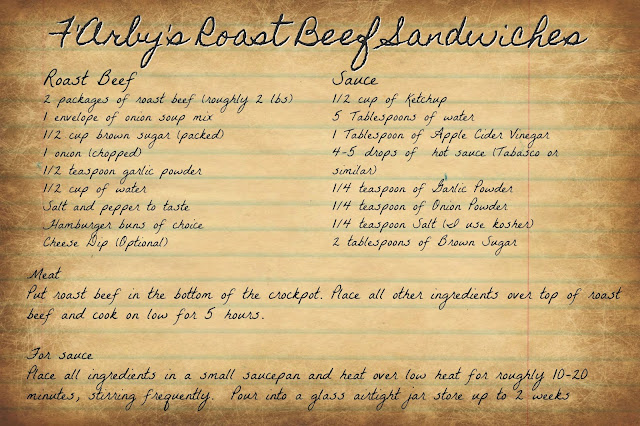 F'Arby's Roast Beef Sandwiches
Roast Beef
2 packages of roast beef (roughly 2 lbs)
1 envelope of onion soup mix
1/2 cup brown sugar (packed)
1 onion (chopped)
1/2 teaspoon garlic powder
1/2 cup of water
Salt and pepper to taste
Hamburger buns of choice
Cheese Dip (Optional)
Sauce
1/2 cup of Ketchup
5 Tablespoons of water
1 Tablespoon of Apple Cider Vinegar
4-5 drops of hot sauce (Tabasco or
similar)
1/4 teaspoon of Garlic Powder
1/4 teaspoon of Onion Powder
1/4 teaspoon Salt (I use kosher)
2 tablespoons of Brown Sugar
Meat
Put roast beef in the bottom of the crockpot. Place all other ingredients over top of roast
beef and cook on low for 5 hours.
For sauce
Place all ingredients in a small saucepan and heat over low heat for roughly 10-20
minutes, stirring frequently. Pour into a glass airtight jar store up to 2 weeks